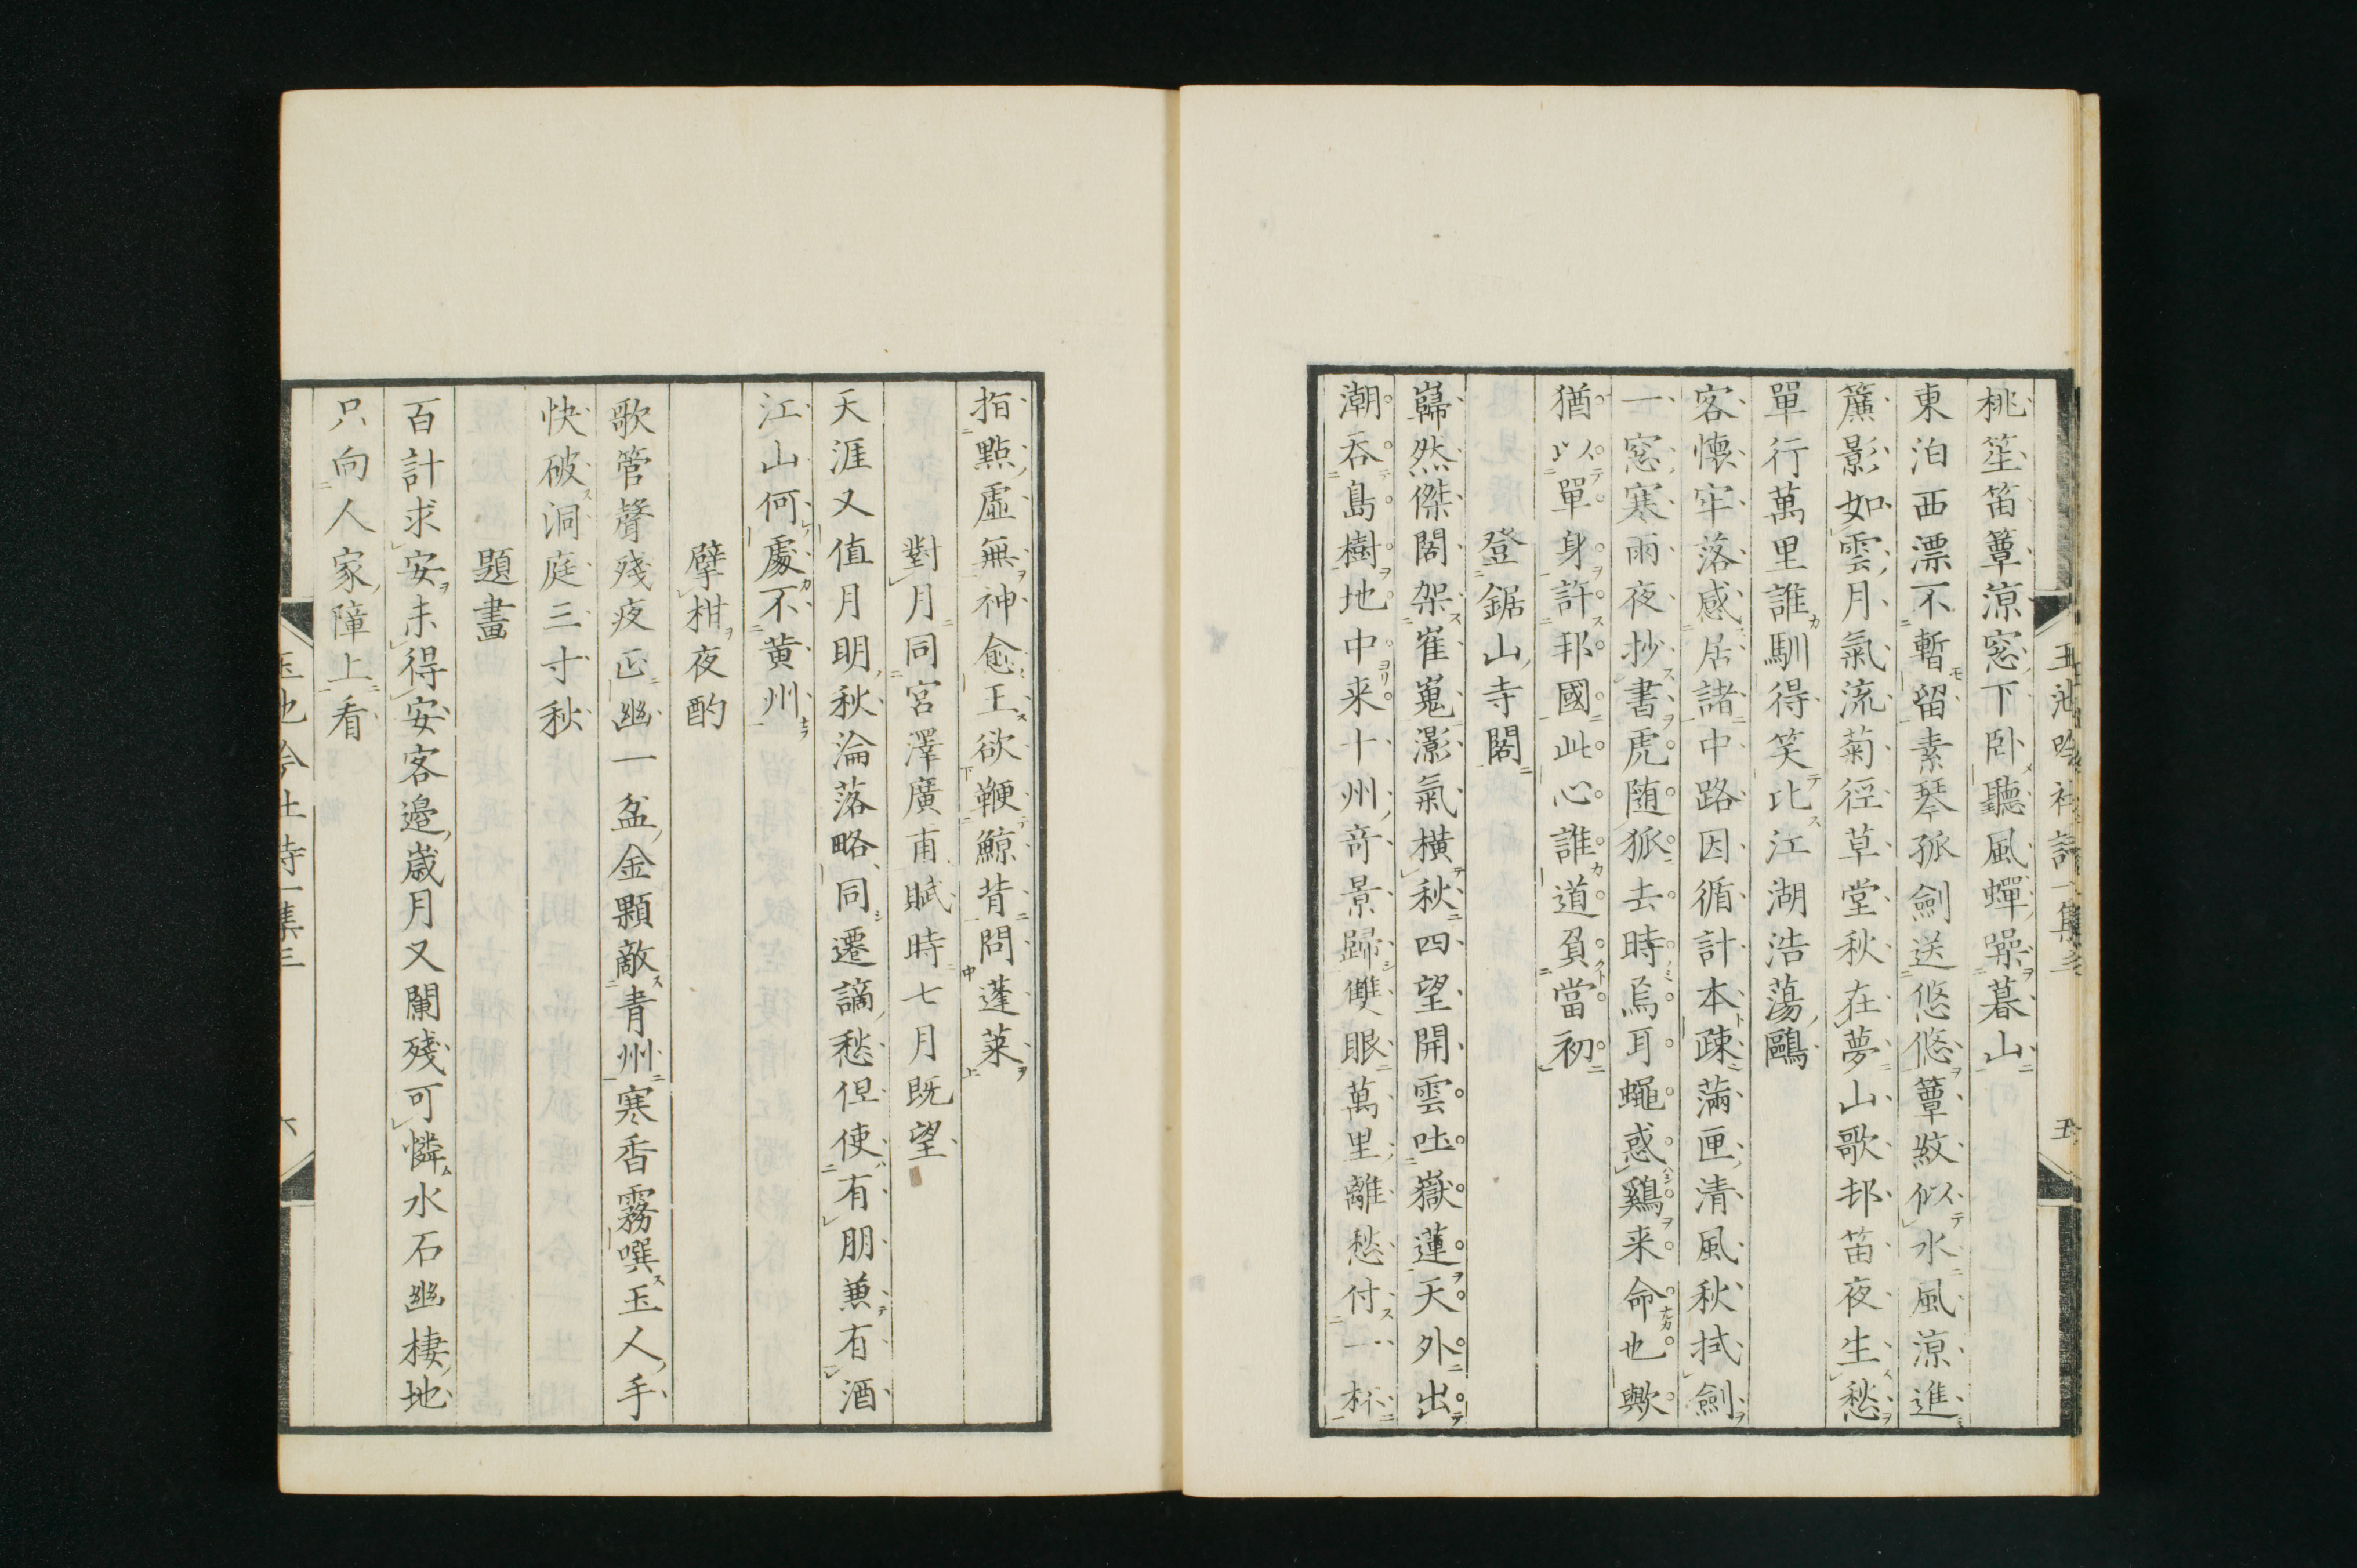 桃笙笛簟涼窓下卧聽風蟬躁暮山
東泊西漂不暫留素琴孤劍送悠悠簟紋似水風涼進
簾影如雲月氣流菊徑草堂秋在夢山歌邨笛夜生愁
單行萬里誰馴得笑比江湖浩蕩鷗
客懷牢落感居諸中路因循計本疎滿匣清風秋拭劍
一窓寒雨夜抄書虎随狐去時焉耳蠅惑鷄来命也歟
猶以單身許邦國此心誰道負當初
登鋸山寺閣
巋然傑閣架崔嵬灝氣橫秋四望開雲吐嶽蓮天外出
潮吞島樹地中来十州竒景歸雙眼萬里離愁付一杯
指點虛無神愈王欲鞭鯨背問蓬萊
對月同宮澤廣甫賦時七月既望
天涯又值月明秋淪落略同遷謫愁但使有朋兼有酒
江山何處不黄州
擘柑夜酌
歌管聲殘夜正幽一盆金顆敵青州寒香霧噀玉人手
快破洞庭三寸秋
題畫
百計求安未得安客邉歲月又闌殘可憐水石幽棲地
只向人家障上看